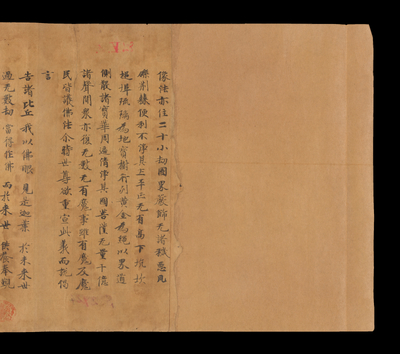 像法亦住二十小劫國界嚴飾无諸穢惡瓦
礫荊棘便利不淨其土平正无有高下
琉璃為地寶樹行列黃金為繩以界道
側散諸寶華周遍清淨其國菩薩无量千億
諸聲聞眾亦復无數无有魔事雖有魔及魔
民皆護佛法尒時世尊欲重宣此義而說偈
言
告諸比丘 我以佛眼 見是迦葉 於未來世
過无數劫 當得作佛 而於來世 供養奉覲